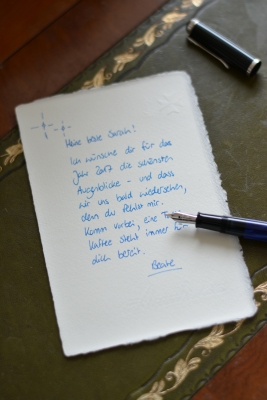 Meine liebe Sarah!
Ich wünsche dir für das
Jahr 2017 die schönsten
Augenblicke - und dass
wir uns bald wiedersehen,
denn du fehlst mir.
Komm vorbei, eine
Kaffee steht immer für
dich bereit.
Beate